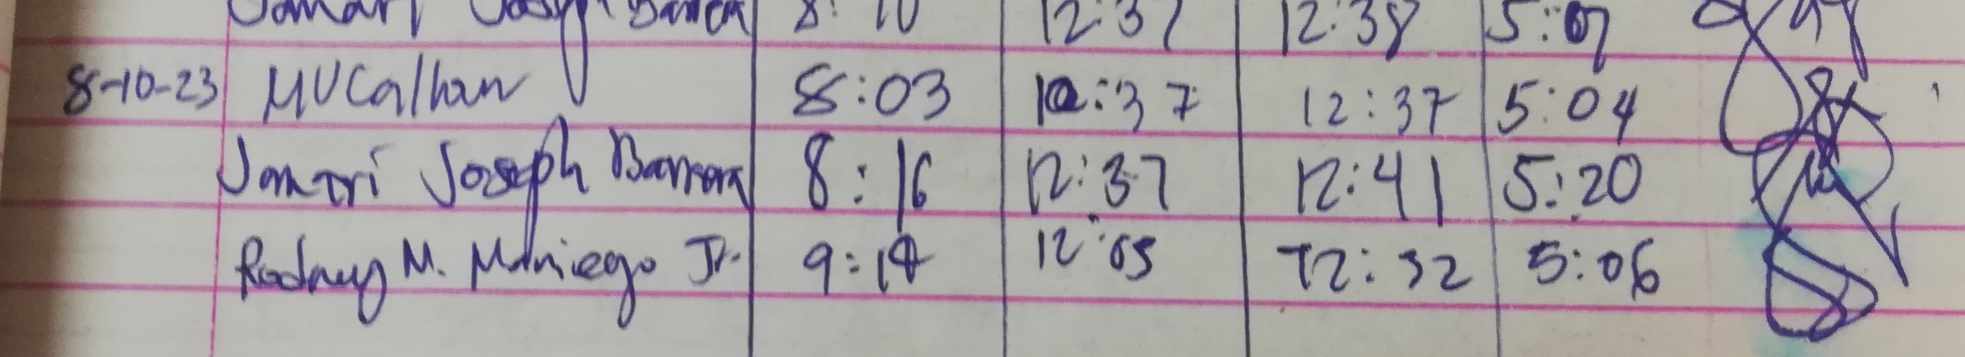 Jamari Joseph Barrera 8:10 12:37 12:38 5:07
8-10-23 MVCalhan 8:03 12:37 12:37 5:04
Jamari Joseph Barrera 8:16 12:37 12:41 5:20
Rodney M. Maniego Jr. 9:14 12:05 12:32 5:06